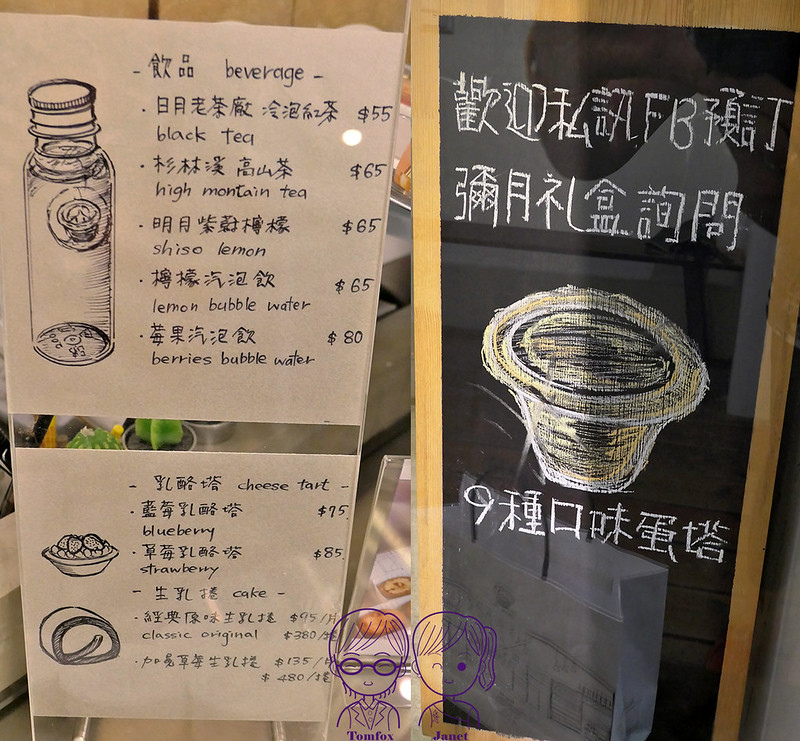 - 飲品 beverage -
· 日月老茶廠 冷泡紅茶 $55
black tea
· 杉林溪 高山茶 $65
high montain tea
· 明月紫蘇檸檬 $65
shiso lemon
· 檸檬汽泡飲 $65
lemon bubble water
· 莓果汽泡飲 $80
berries bubble water
- 乳酪塔 cheese tart -
· 藍莓乳酪塔 $75
blueberry
· 草莓乳酪塔 $85
strawberry
- 生乳捲 cake -
· 經典原味生乳捲 $95/片
classic original $380/捲
草莓生乳捲 $135/片
$480/捲
歡迎私訊FB預訂
彌月礼盒詢問
9種口味蛋塔
Tomfox Janet